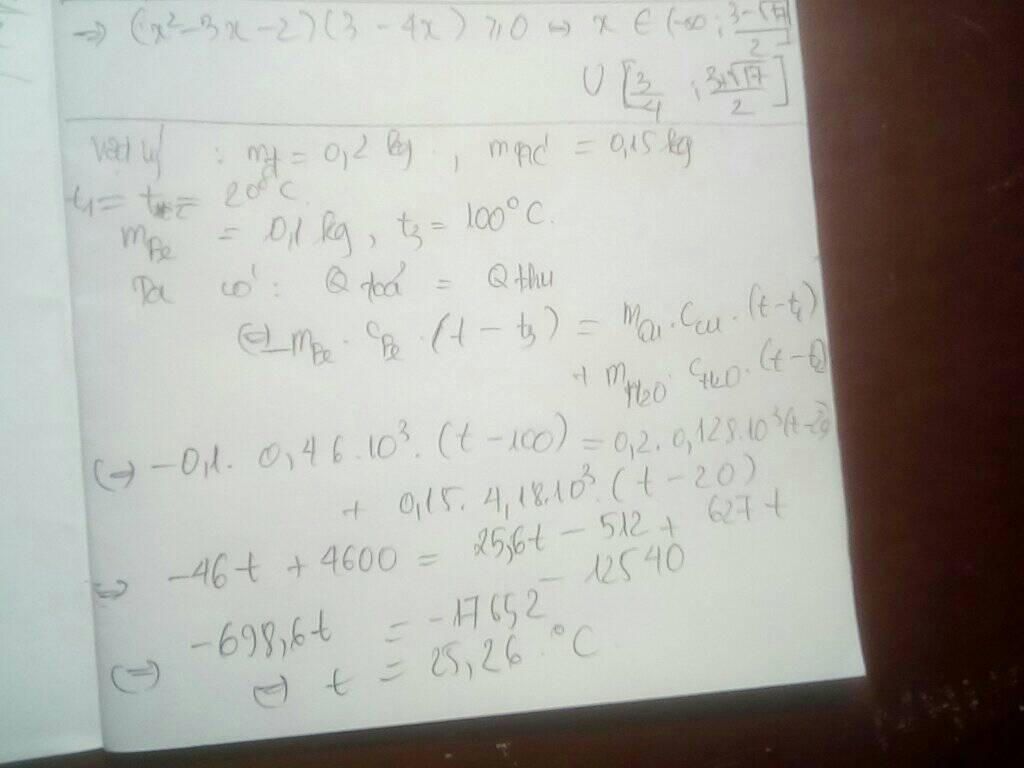 => (x²-3x-2)(3-4x) ≥0 ↔ x ∈ (-∞; (3-√17)/2]
∪ [3/4 ; (3+√17)/2]
: m = 0,2 kg , m = 0,15 kg
t₁ = t₂ = 20°C.
m_Fe = 0,1 kg, t₃ = 100°C.
Ta có: Q toả = Q thu
(=) -m_Fe . c_Fe . (t - t₃) = m_Cu . c_Cu . (t-t₁)
+ m_H2O . c_H2O . (t-t₂)
(=) -0,1. 0,46.10³. (t-100) = 0,2. 0,128.10³(t-20)
+ 0,15. 4,18.10³. (t-20)
=> -46t + 4600 = 25,6t - 512 + 627t
- 12540
(=) -698,6t = -17652
(=) t = 25,26 °C